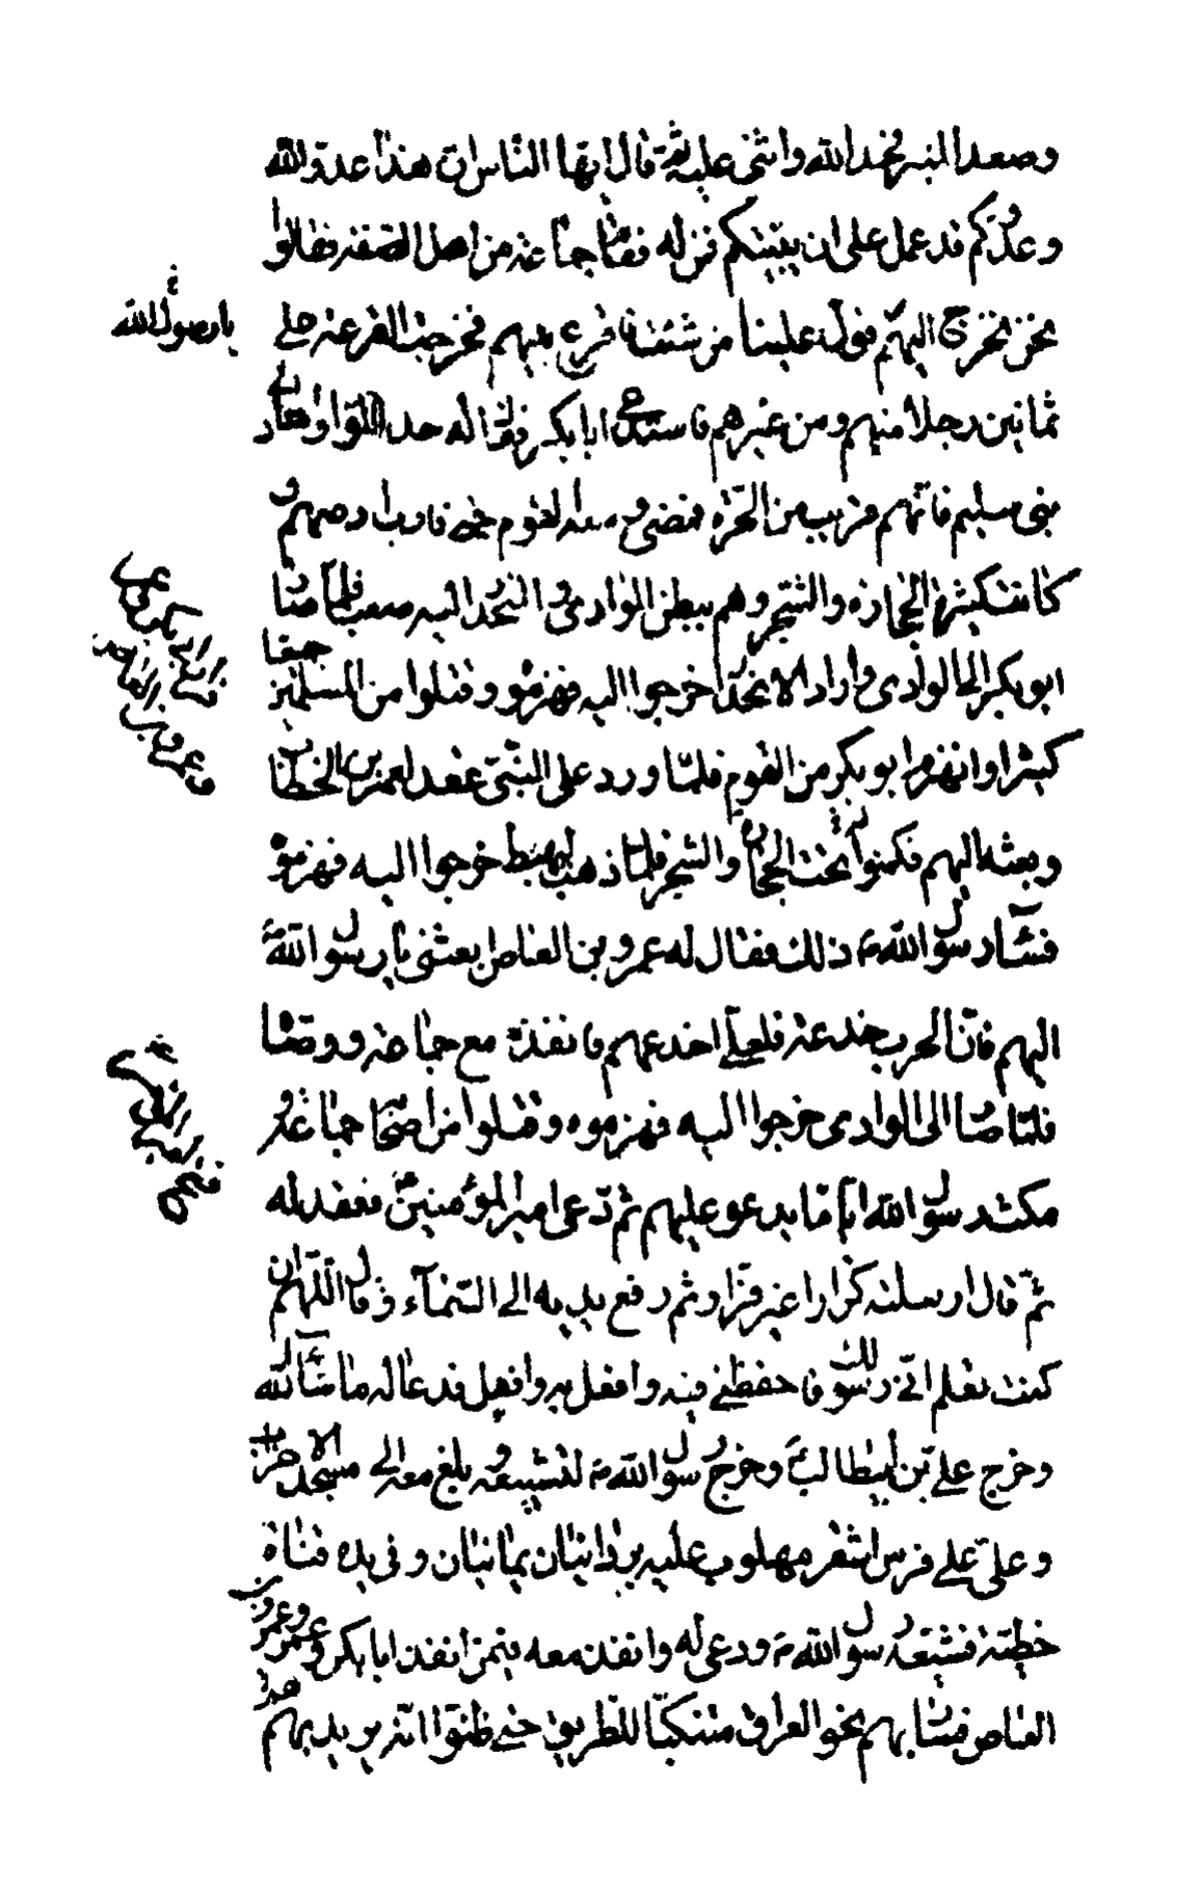 وصعد المنبر فحمد الله واثنى عليه ثم قال ايها الناس ان هذا عدو الله
وعدوكم قد عمل على ان يبيتكم فمن له فقام جماعة من اهل الصفة فقالوا
نحن نخرج اليهم فول علينا من شئت فاقرع بينهم فخرجت القرعة على
يا رسول الله
ثمانين رجلا منهم ومن غيرهم فاستدعى ابا بكر فقال له خذ اللواء وامض الى
بنى سليم فانهم قريب من الحرة فمضى ومعه القوم حتى قارب ارضهم و
كانت كثيرة الحجارة والشجر وهم ببطن الوادى والمنحدر اليه صعب فلما صار
ابو بكر الى الوادى واراد الانحدار خرجوا اليه فهزموه وقتلوا من المسلمين جمعا
كثيرا وانهزم ابو بكر من القوم فلما ورد على النبى عقد لعمر بن الخطاب
وبعثه اليهم فكمنوا له تحت الحجارة والشجر فلما ذهب ليهبط خرجوا اليه فهزموه
فساء رسول الله ذلك فقال له عمرو بن العاص ابعثنى يا رسول الله
اليهم فان الحرب خدعة فلعلى اخدعهم فانفذه مع جماعة ووصاه
فلما صار الى الوادى خرجوا اليه فهزموه وقتلوا من اصحابه جماعة و
مكث رسول الله اياما يدعو عليهم ثم دعى امير المؤمنين فعقد له
ثم قال ارسلته كرارا غير فرار ثم رفع يديه الى السماء وقال اللهم ان
كنت تعلم انى رسولك فاحفظنى فيه وافعل به وافعل فدعا له ما شاء الله
وخرج على بن ابيطالب وخرج رسول الله لتشييعه وبلغ معه الى مسجد الاحزاب
وعلى على فرس اشقر مهلوب عليه بردان يمانيان وفى يده قناة
خطية فشيعه رسول الله ودعى له وانفذ معه فيمن انفذ ابا بكر وعمر وعمرو بن
العاص فسار بهم نحو العراق متنكبا للطريق حتى ظنوا انه يريد بهم